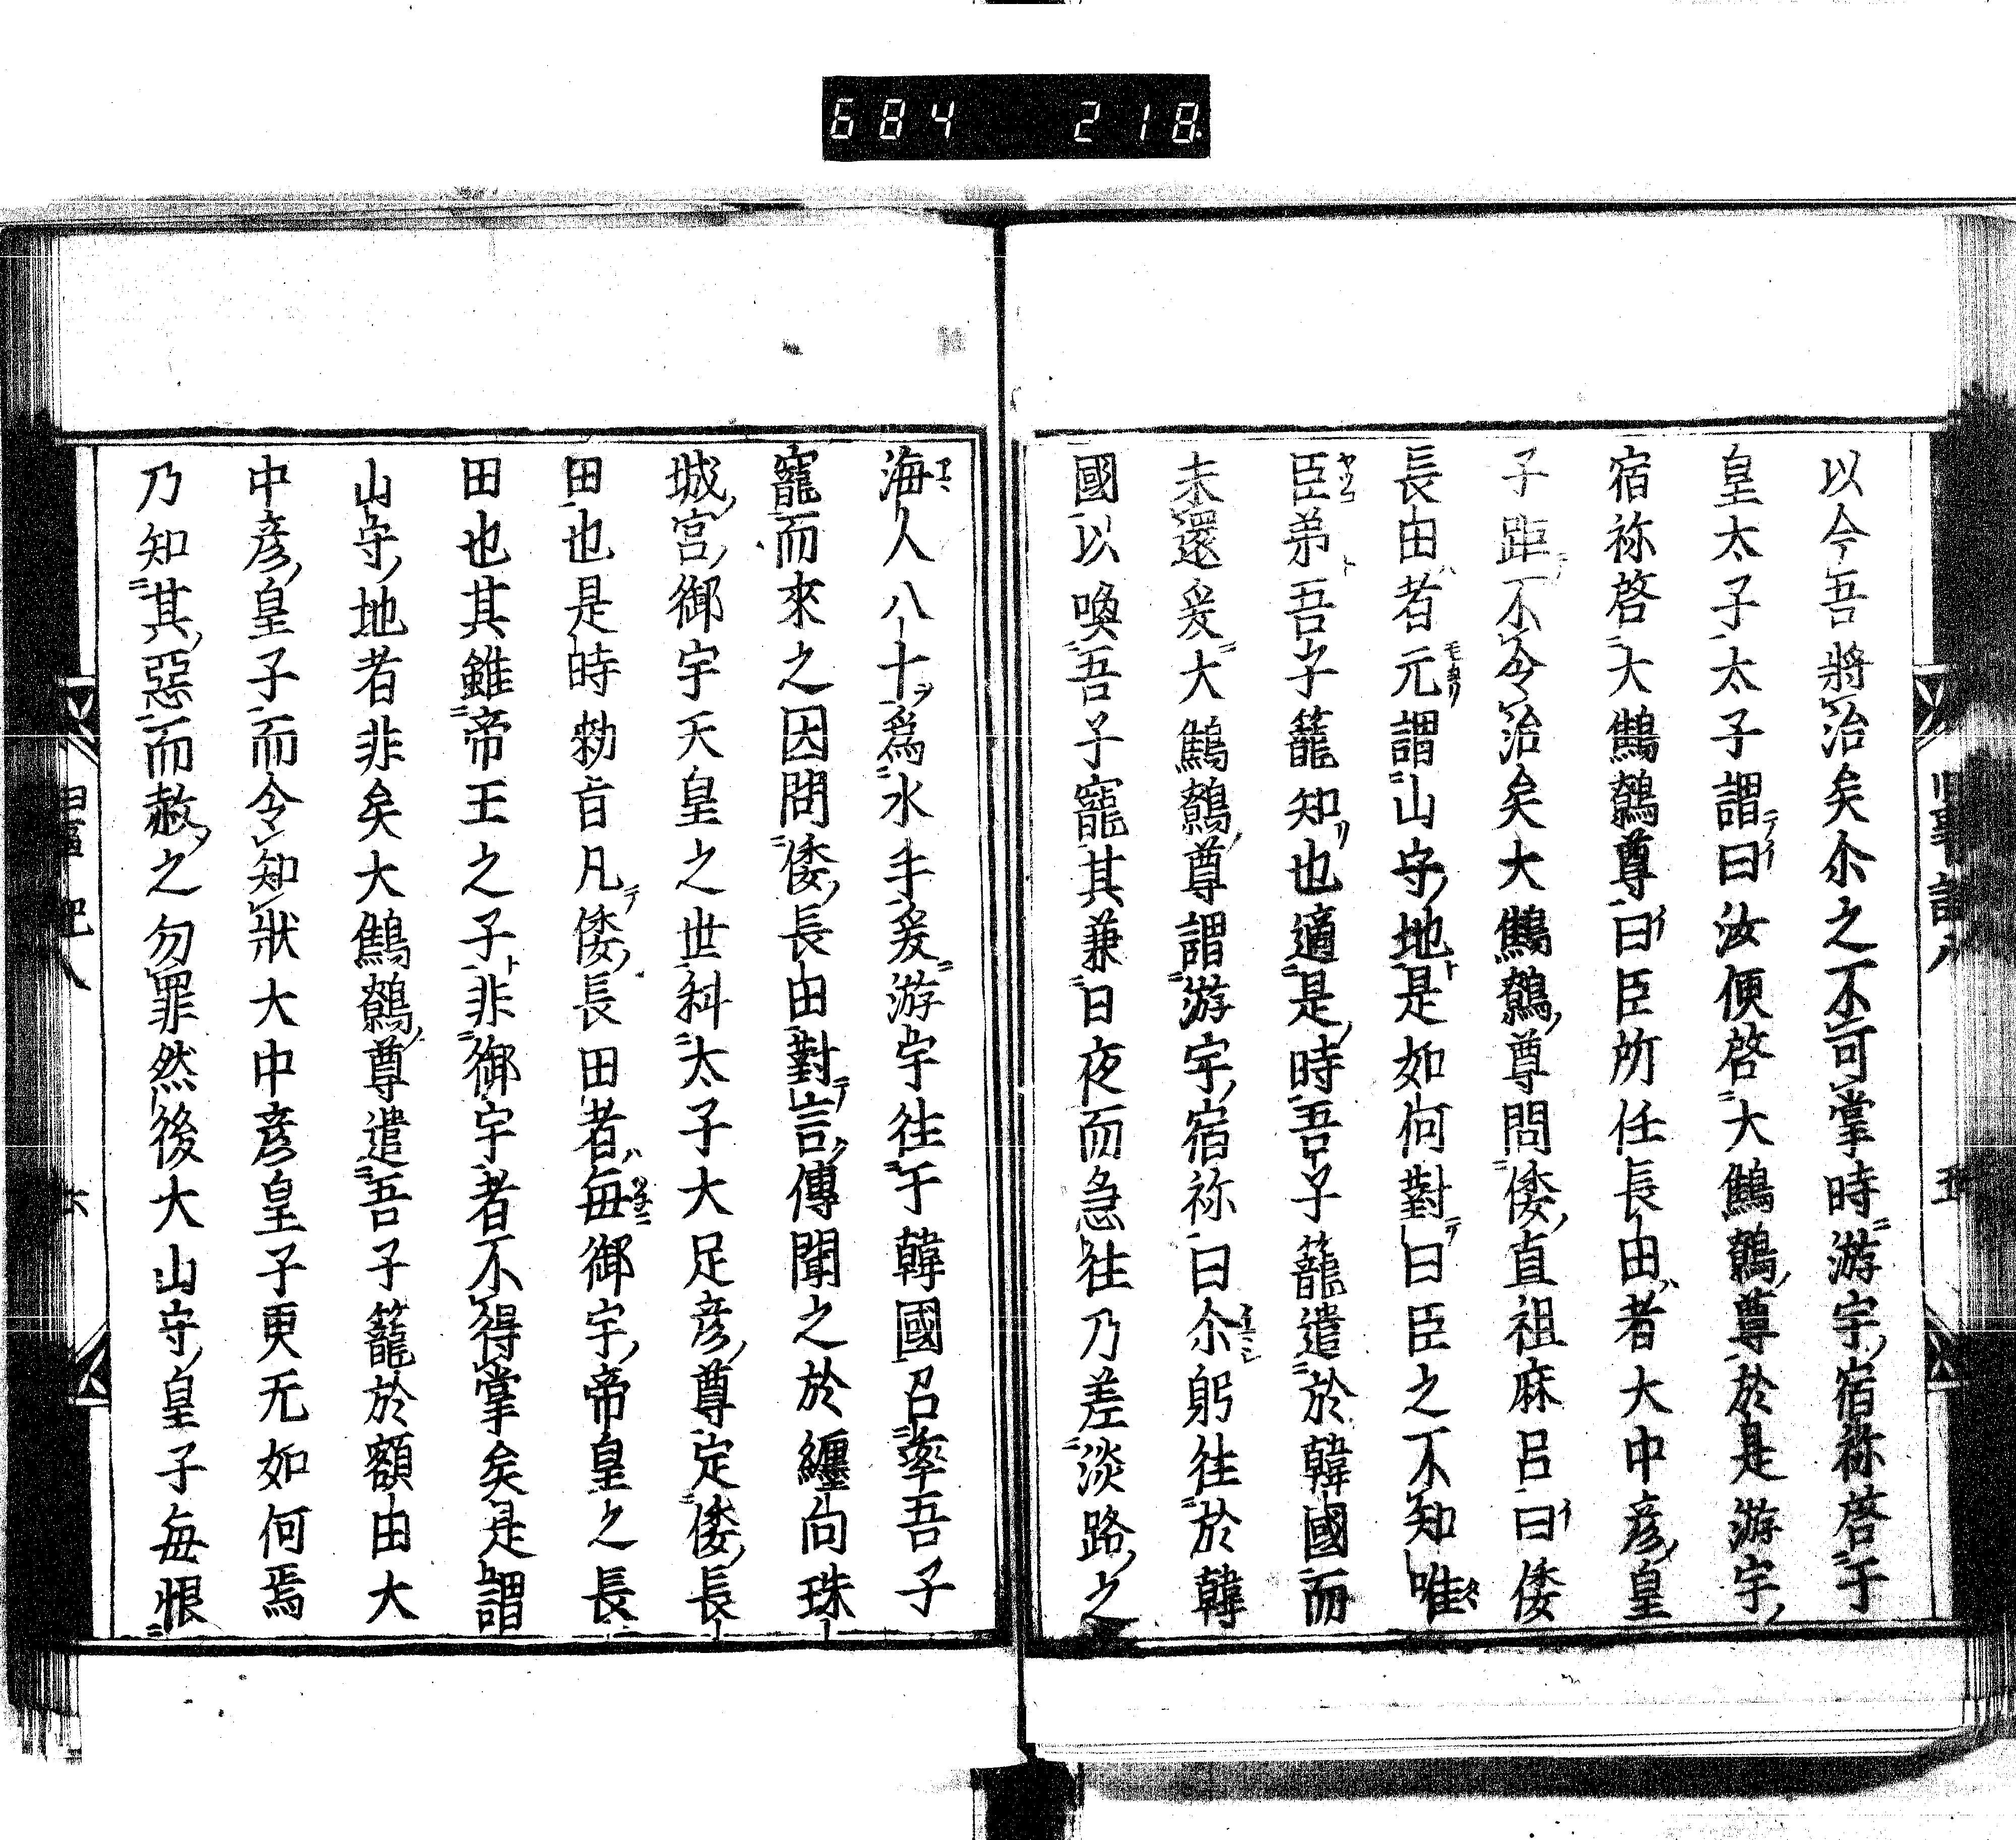 684 218
以今吾將治矣尒之不可掌時游宇宿祢啓于
皇太子太子謂曰汝便啓大鷦鷯尊於是游宇
宿祢啓大鷦鷯尊曰臣所任長由者大中彦皇
子距不令治矣大鷦鷯尊問倭直祖麻呂曰倭
長由者元謂山守地是如何對曰臣之不知唯
臣弟吾子籠知也適是時吾子籠遣於韓國而
未還爰大鷦鷯尊謂游宇宿祢曰尒躬往於韓
國以喚吾子寵其兼日夜而急往乃差淡路之
海人八十爲水手爰游宇往于韓國召率吾子
寵而來之因問倭長由對言傳聞之於纏向珠
城宮御宇天皇之世科太子大足彦尊定倭長
田也是時勅旨凡倭長田者每御宇帝皇之長
田也其雖帝王之子非御宇者不得掌矣是謂
山守地者非矣大鷦鷯尊遣吾子籠於額由大
中彦皇子而令知狀大中彦皇子更无如何焉
乃知其惡而赦之勿罪然後大山守皇子每恨